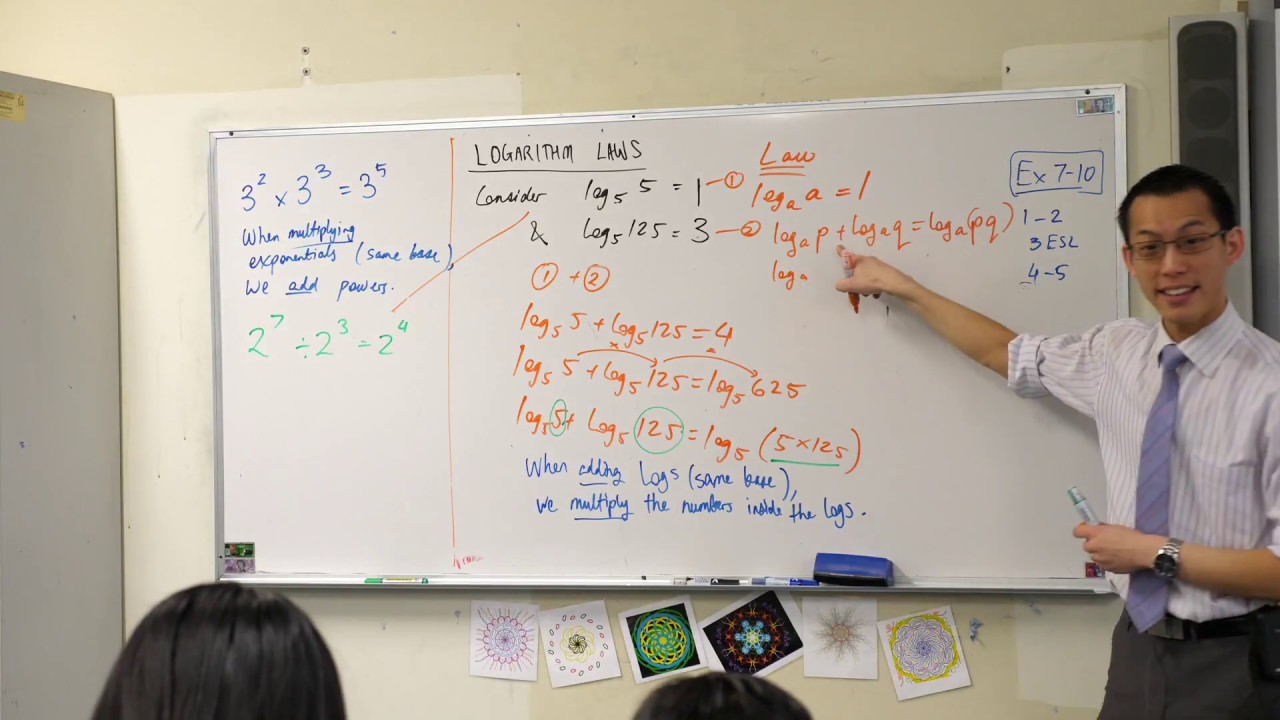 3² × 3³ = 3⁵
When multiplying
exponentials (same base),
we add powers.
2⁷ ÷ 2³ = 2⁴
LOGARITHM LAWS
Consider log₅ 5 = 1 — ①
& log₅ 125 = 3 — ②
① + ②
log₅ 5 + log₅ 125 = 4
log₅ 5 + log₅ 125 = log₅ 625
× =
log₅ 5 + log₅ 125 = log₅ (5 × 125)
When adding logs (same base),
we multiply the numbers inside the logs.
Law
logₐ a = 1
logₐ p + logₐ q = logₐ (pq)
logₐ
Ex 7-10
1 - 2
3 ESL
4 - 5